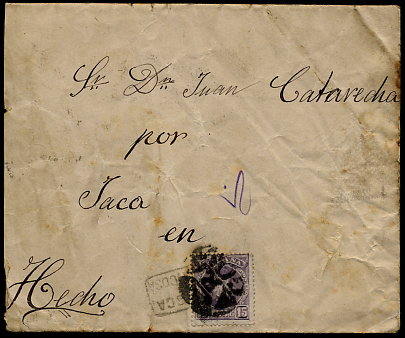 Sr. Dn. Juan Catarecha
por
Jaca
en
Hecho
15